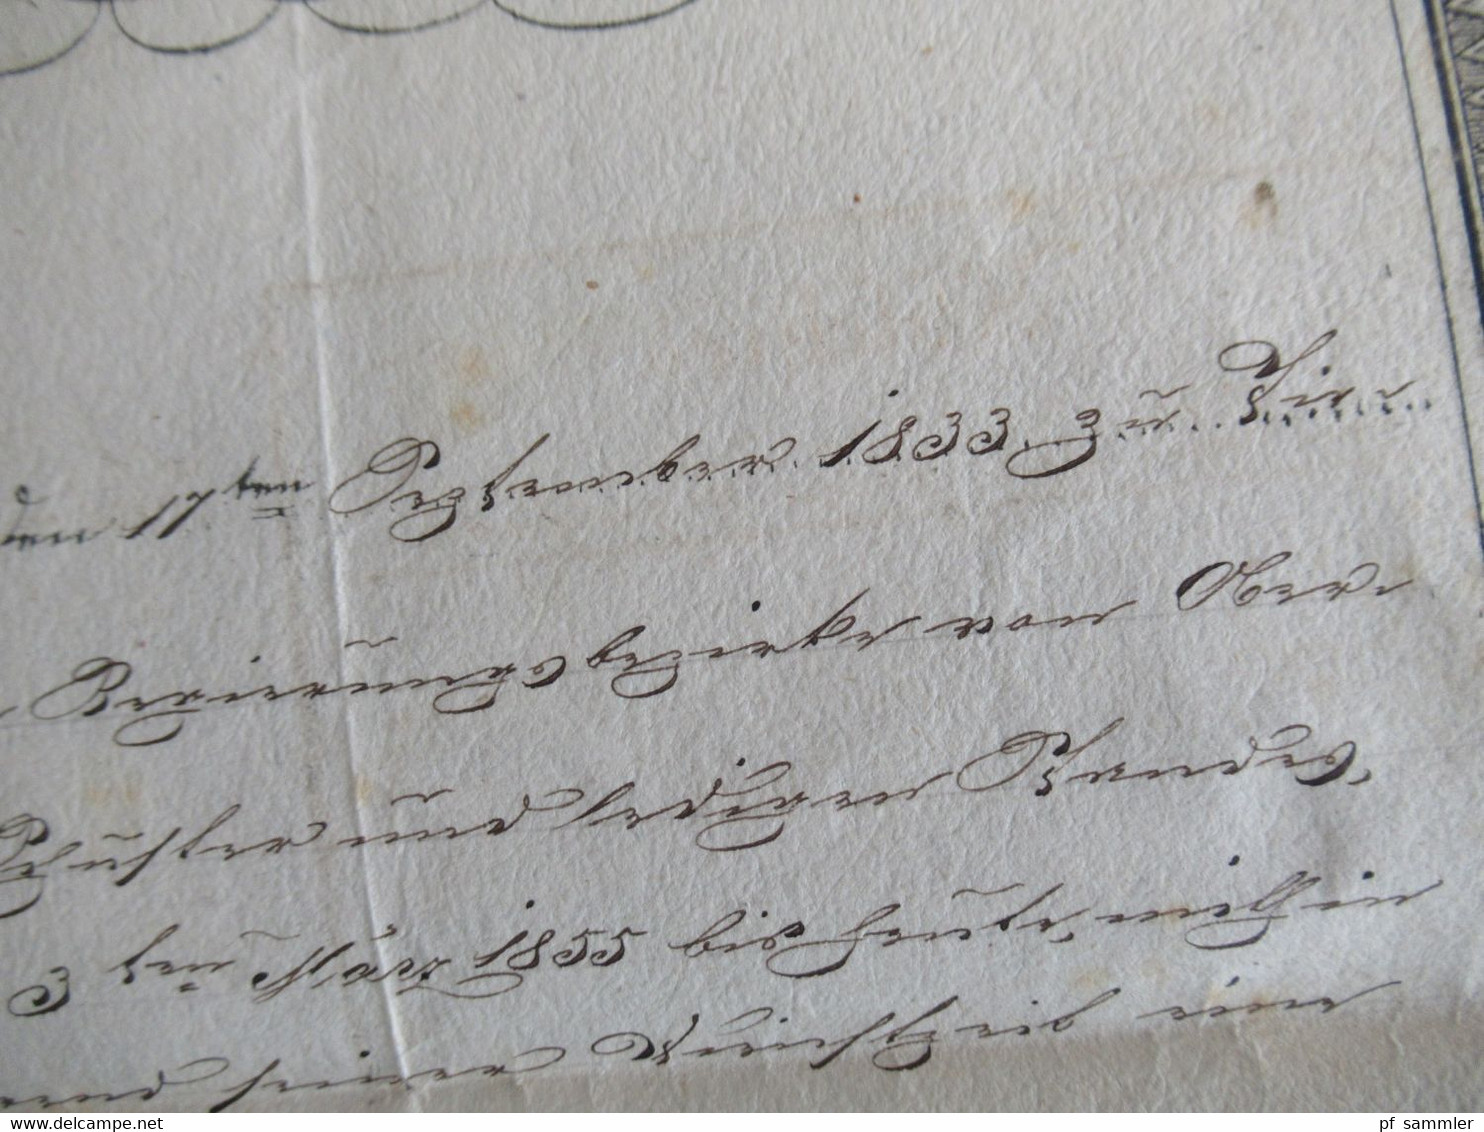 den 17ten September 1833 zu
Regierungsbezirke von Ober-
Schuster und ledigen Standes,
3ten März 1855 bis heute, mithin
seiner Dienstzeit eine
www.delcampe.net
pf sammler